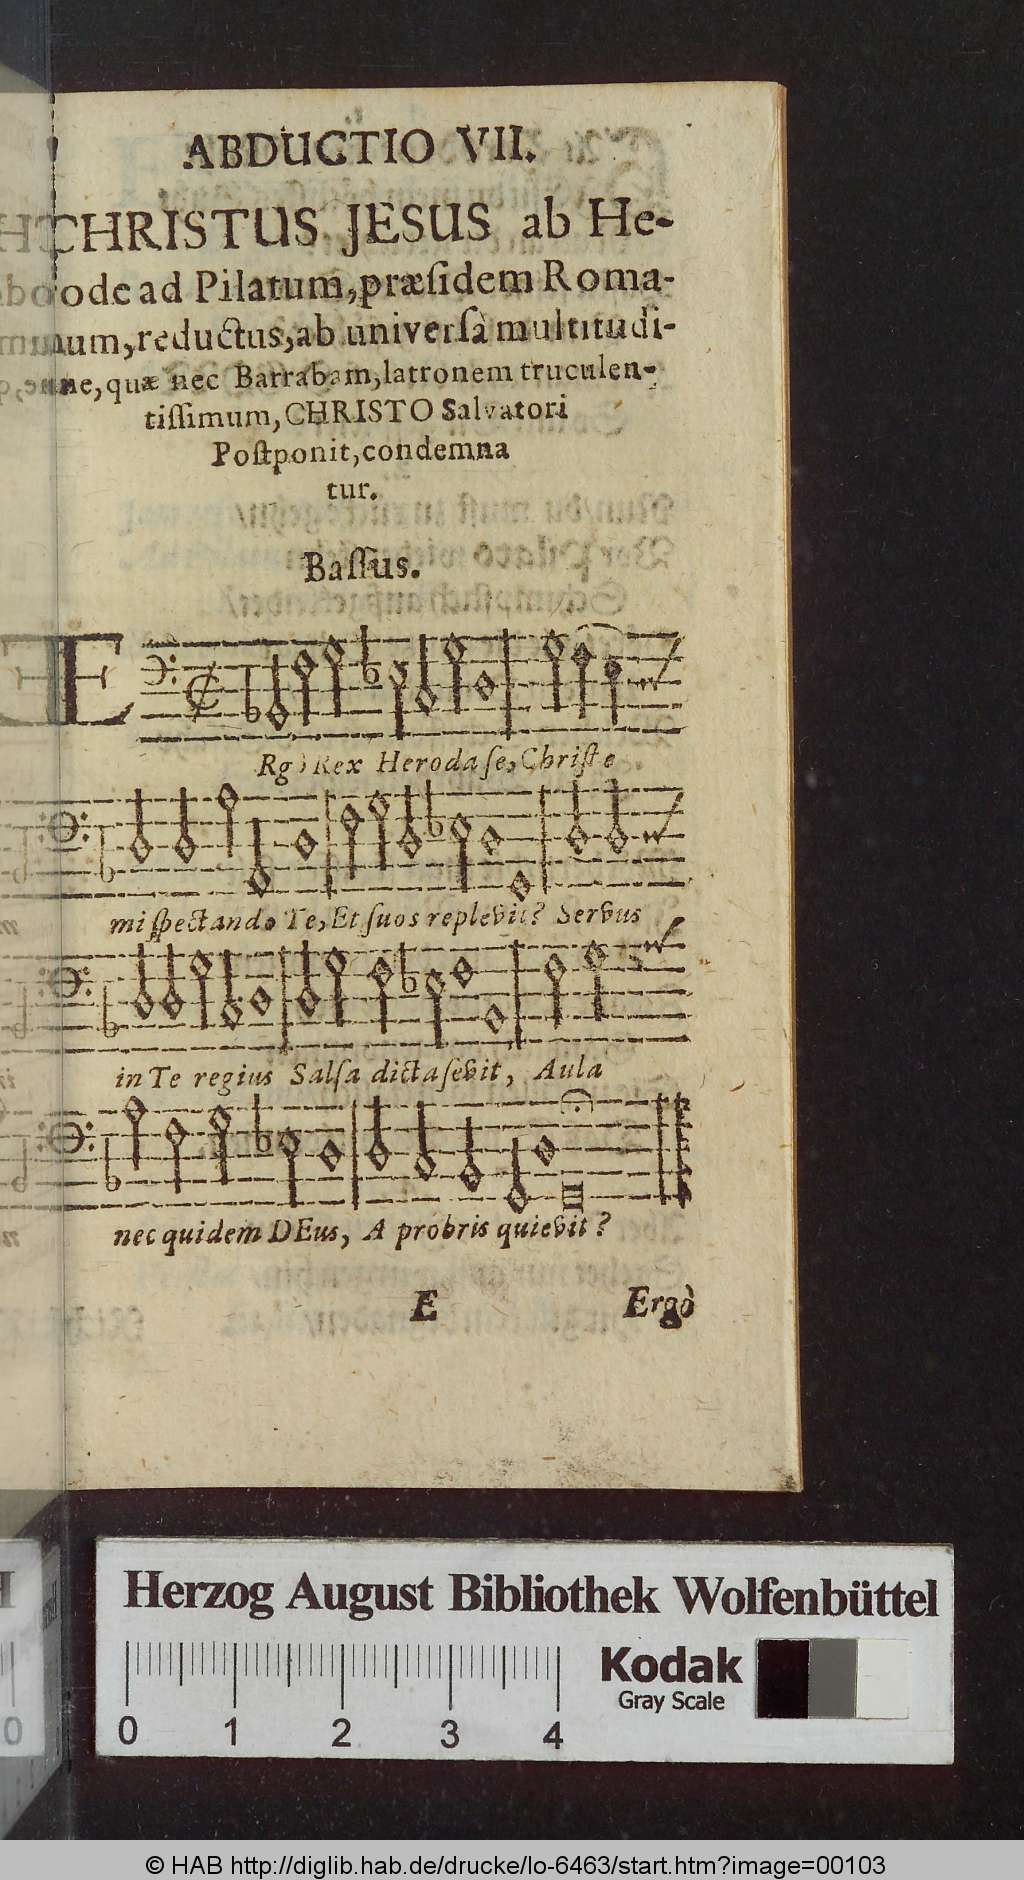 ABDUCTIO VII.
CHRISTUS JESUS ab He-
rode ad Pilatum, præsidem Roma-
num, reductus, ab universâ multitudi-
ne, quæ nec Barrabam, latronem truculen-
tissimum, CHRISTO Salvatori
Postponit, condemna
tur.
Bassus.
E
Rgò Rex Heroda se, Christe
mi spectando Te, Et suos replevit? Servus
in Te regius Salsa dicta sevit, Aula
nec quidem DEus, A probris quievit?
E Ergò
Herzog August Bibliothek Wolfenbüttel
Kodak
Gray Scale
0 1 2 3 4
© HAB http://diglib.hab.de/drucke/lo-6463/start.htm?image=00103